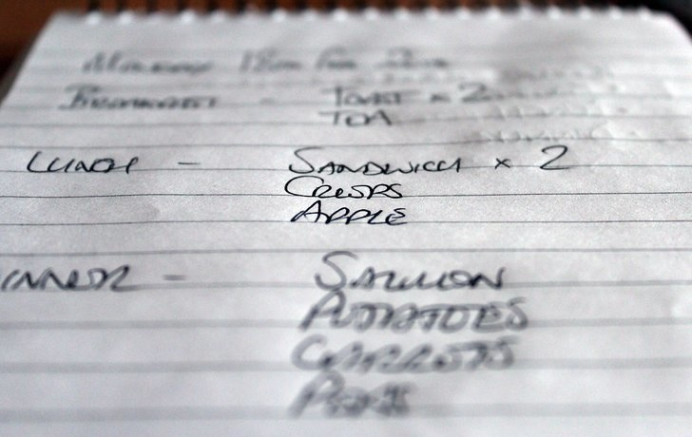 Monday 18th
Breakfast - Toast x 2
Tea
Lunch - Sandwich x 2
Crisps
Apple
inner - Salmon
Potatoes
Carrots
Peas